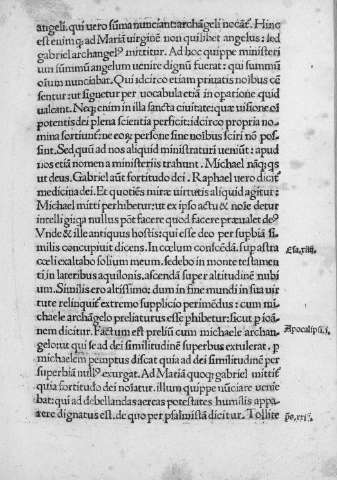 angeli. qui vero sūma nunciant: archāgeli nocāt̄. Hinc
est enim q; ad Mariā virginē non quilibet angelus: sed
gabriel archangelꝰ mittitur. Ad hoc quippe ministeri
um sūmmū angelum uenire dignū fuerat: qui summū
oīum nunciabat. Qui idcirco etiam priuatis noibus cē
sentur: ut signetur per uocabula etiā in opatione quid
ualeant. Neq; enim in illa sancta ciuitate: quā uisiōe oī
potentis dei plena scientia perficit: idcirco propria no
mina sortiunt̄: ne eoꝝ persone sine noibus sciri nō pos
sint. Sed quū ad nos aliquid ministraturi ueniūt: apud
nos etiā nomen a ministeriis trahunt. Michael nāq; qs
ut deus. Gabriel aūt fortitudo dei. Raphael uero dicit̄
medicina dei. Et quotiēs miræ uirtutis aliquid agitur:
Michael mitti perhibetur: ut ex ipso actu & noīe detur
intelligi: qa nullus pōt facere quod facere præualet deꝰ
Vnde & ille antiquus hostis: qui esse deo per supbiā si
milis concupiuit dicens. In cœlum conscēdā. sup astra
cœli exaltabo solium meum. sedebo in monte testamen
ti in lateribus aquilonis. ascendā super altitudinē nubi
um. Similis ero altissimo: dum in fine mundi in sua uir
tute relinquit̄ extremo supplicio perimēdus: cum mi
chaele archāgelo preliaturus esse phibetur: sicut p ioā
nem dicitur. Factum est preliū cum michaele archan-
gelo: ut qui se ad dei similitudinē superbus extulerat. p
michaelem peremptus discat quia ad dei similitudinē per
superbiā nullꝰ exurgat. Ad Mariā quoq; gabriel mittit̄
quia fortitudo dei noīatur. illum quippe nūciare uenie
bat: qui ad debellandas aereas potestates humilis appa
rere dignatus est. de quo per psalmistā dicitur. Tollite
Esa. xiiii.
Apocalip. xii.
ps. xxiii.